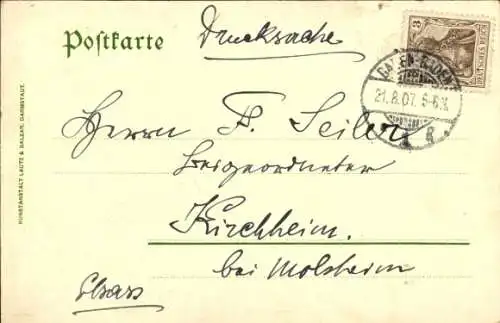 Postkarte
Drucksache
3
DEUTSCHES REICH
BADEN-BADEN
21.8.07. 5-6N.
Herrn F. Seiler
Beigeordneter
Kirchheim.
bei Molsheim
Elsass
KUNSTANSTALT LAUTZ & BALZAR, DARMSTADT.